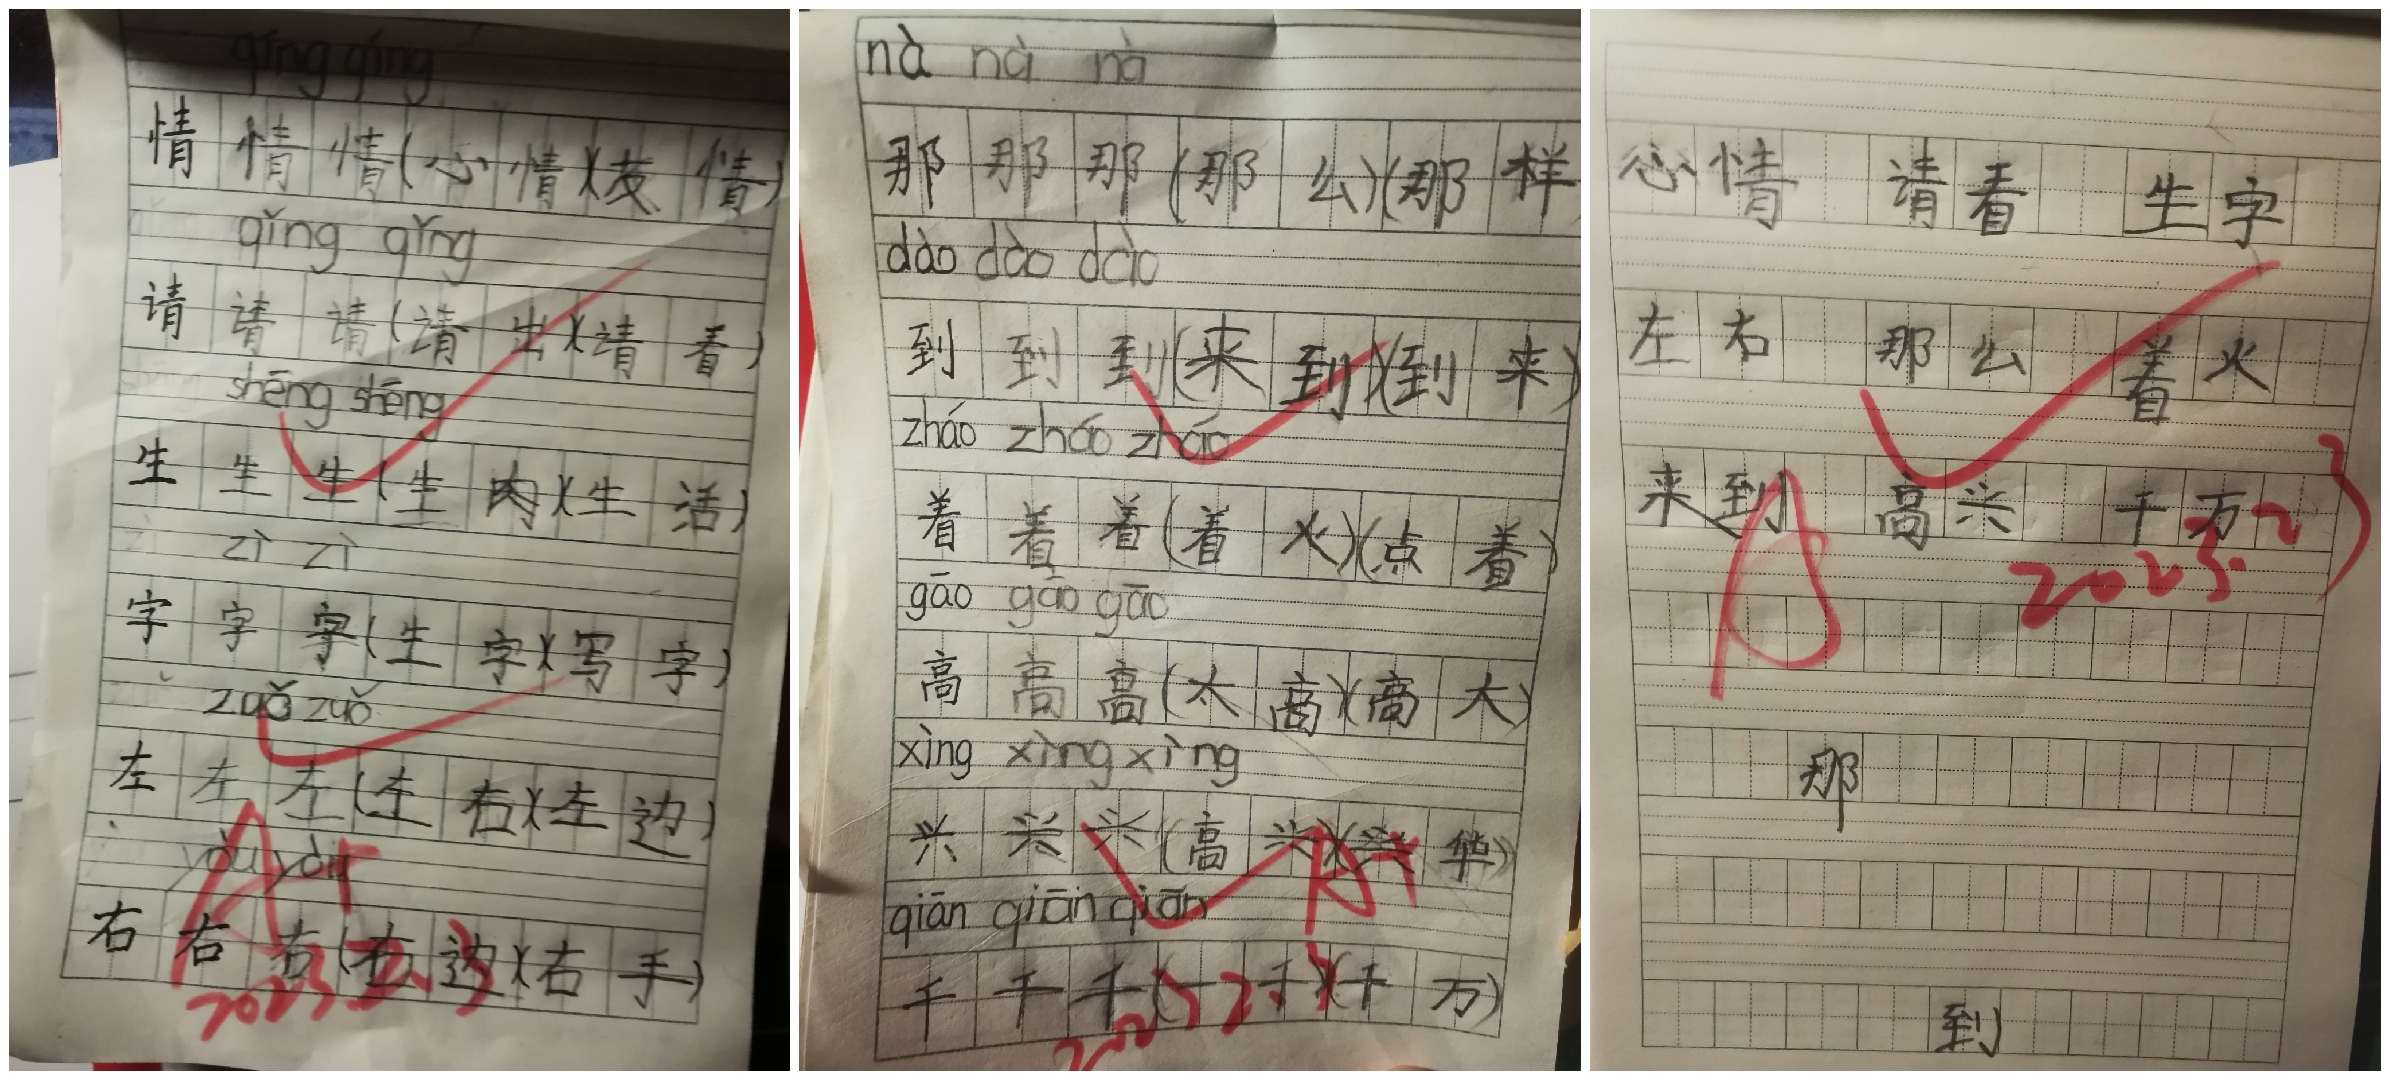 qíng qíng
情情情(心情)(友情)
qǐng qǐng
请请请(请出)(请看)
shēng shēng
生生生(生肉)(生活)
zì zì zì
字字字(生字)(写字)
zuǒ zuǒ
左左左(左右)(左边)
yòu yòu
右右右(右边)(右手)
A+
2023.2.3
nà nà nà
那那那(那么)(那样
dào dào dào
到到到(来到)(到来)
zháo zháo zháo
着着着(着火)(点着)
gāo gāo gāo
高高高(太高)(高大)
xìng xìng xìng
兴兴兴(高兴)(兴华)
qiān qiān qiān
千千千(一千)(千万)
心情 请看 生字
左右 那么 着火
来到 高兴 千万
A
2023.2
那
到